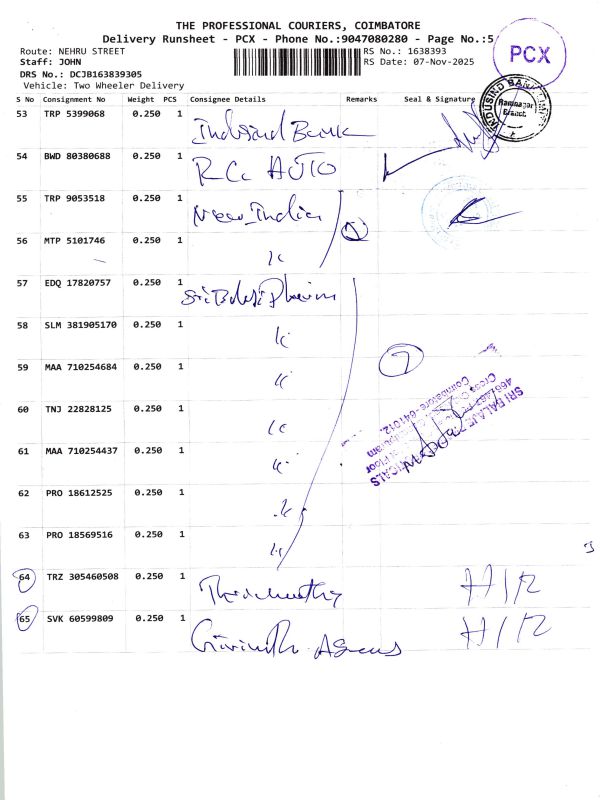 THE PROFESSIONAL COURIERS, COIMBATORE
Delivery Runsheet - PCX - Phone No.:9047080280 - Page No.:5
PCX
Route: NEHRU STREET
RS No.: 1638393
Staff: JOHN
RS Date: 07-Nov-2025
DRS No.: DCJB163839305
Vehicle: Two Wheeler Delivery
S No Consignment No Weight PCS Consignee Details Remarks Seal & Signature
53 TRP 5399068 0.250 1 IndusInd Bank
INDUSIND BANK LIMITED Ramnagar Branch
54 BWD 80380688 0.250 1 R.C. AUTO
55 TRP 9053518 0.250 1 New India
56 MTP 5101746 0.250 1
57 EDQ 17820757 0.250 1 Sri Balaji Pharm
58 SLM 381905170 0.250 1
59 MAA 710254684 0.250 1
7
60 TNJ 22828125 0.250 1
SRI BALAJI
Coimbatore-641012.
61 MAA 710254437 0.250 1
62 PRO 18612525 0.250 1
63 PRO 18569516 0.250 1
64 TRZ 305460508 0.250 1
65 SVK 60599809 0.250 1